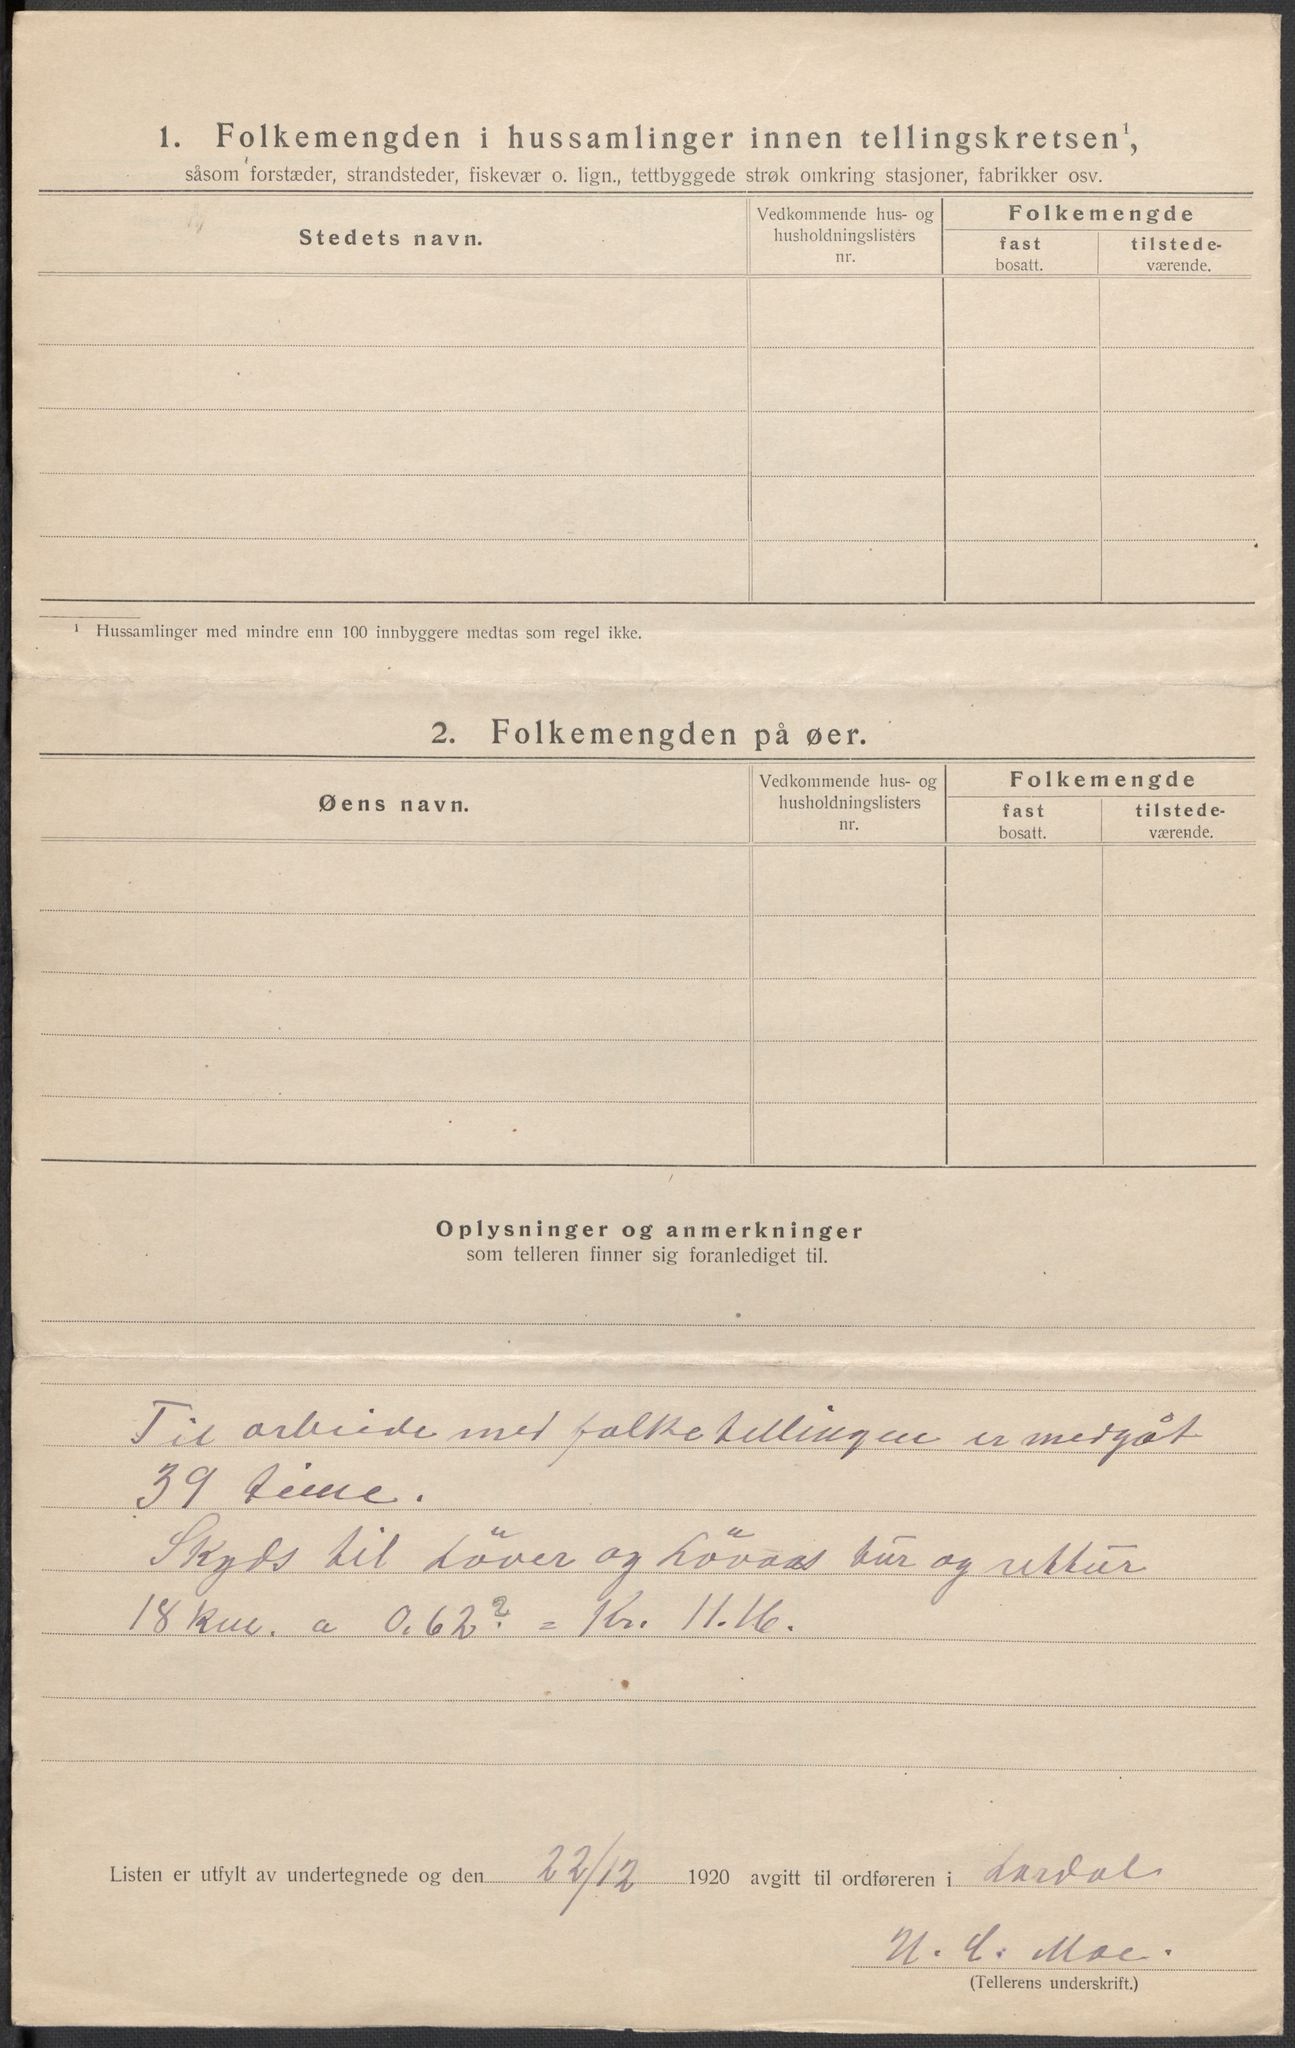 1. Folkemengden i hussamlinger innen tellingskretsen¹,
såsom forstæder, strandsteder, fiskevær o. lign., tettbyggede strøk omkring stasjoner, fabrikker osv.
Stedets navn.
Vedkommende hus- og
husholdningslisters
nr.
Folkemengde
fast
bosatt.
tilstede-
værende.
¹ Hussamlinger med mindre enn 100 innbyggere medtas som regel ikke.
2. Folkemengden på øer.
Øens navn.
Vedkommende hus- og
husholdningslisters
nr.
Folkemengde
fast
bosatt.
tilstede-
værende.
Oplysninger og anmerkninger
som telleren finner sig foranlediget til.
Til arbeide med folketellingen er medgåt
39 time.
Skyds til Löver og Lövaas tur og rettur
18 km. a 0.62? = Kr. 11.16.
Listen er utfylt av undertegnede og den 22/12 1920 avgitt til ordføreren i Lardal
N. C. Moe.
(Tellerens underskrift.)